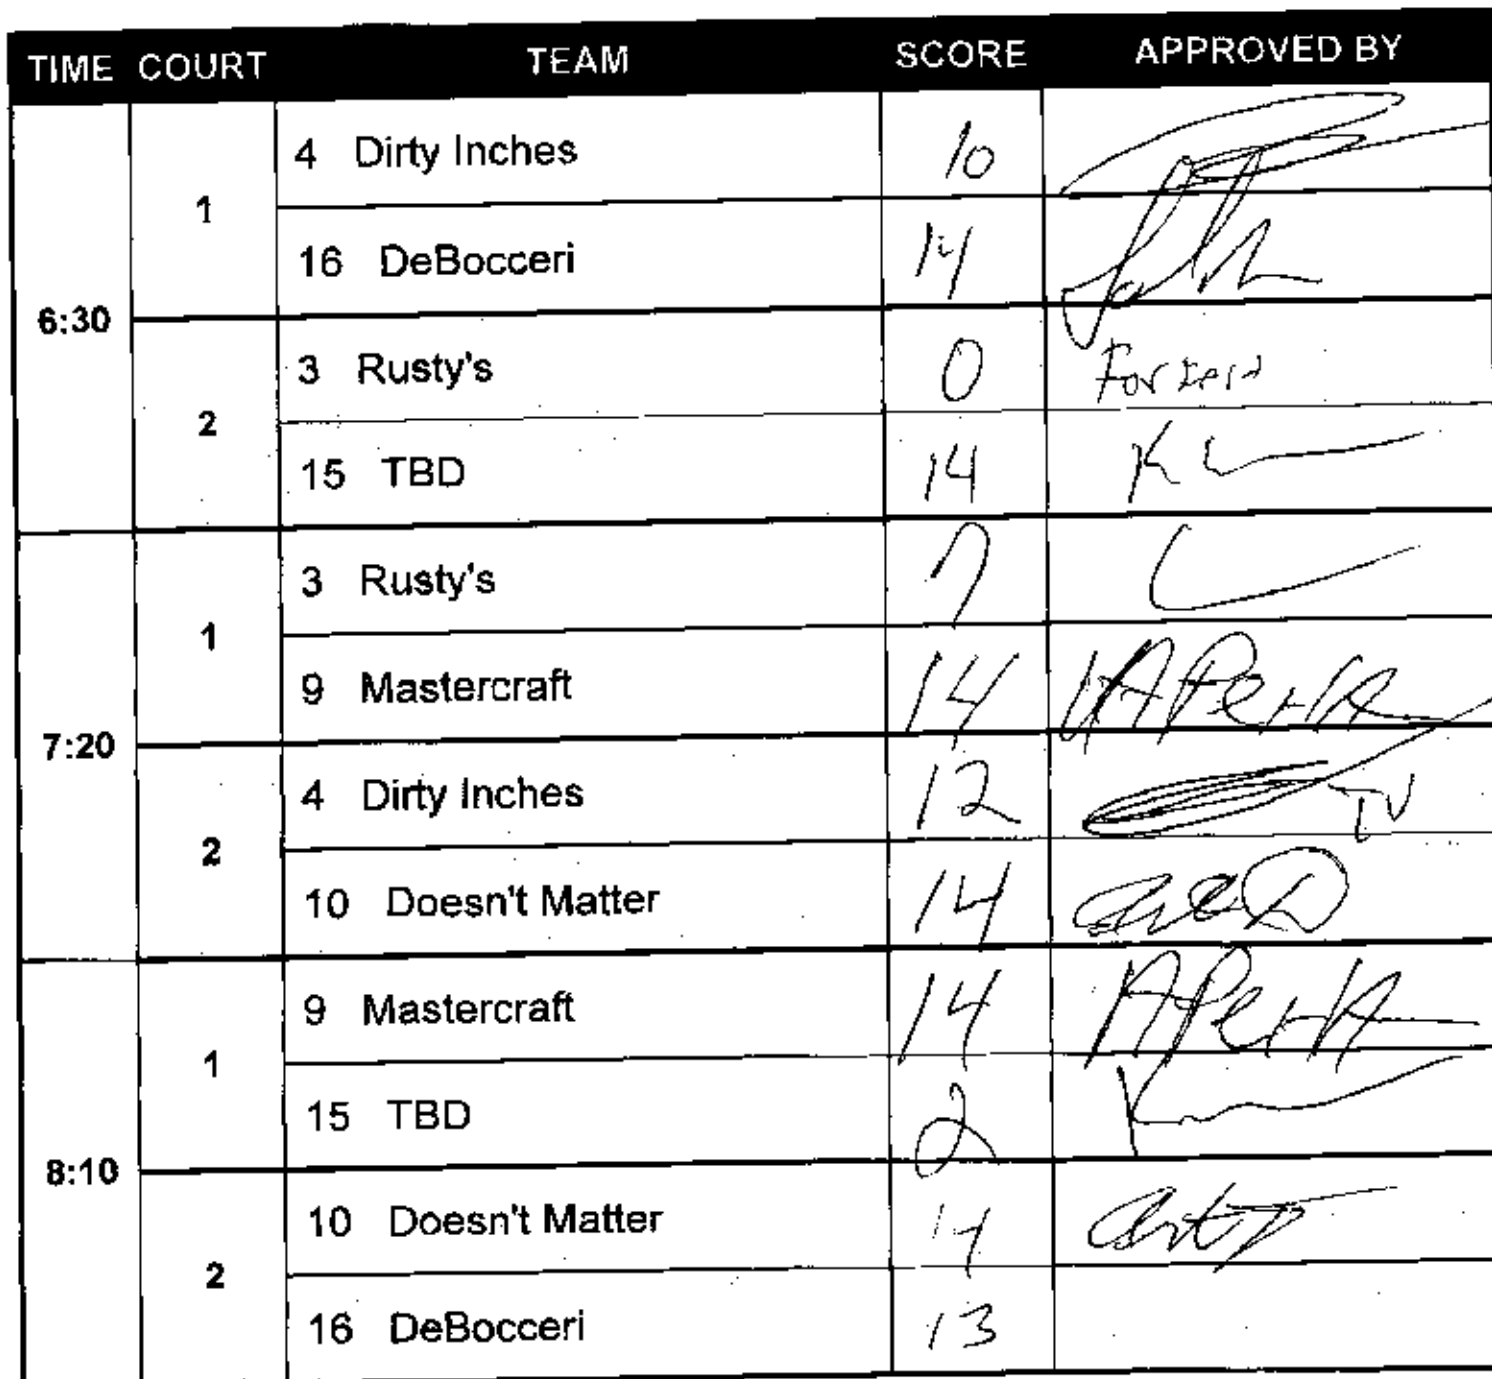 TIME COURT TEAM SCORE APPROVED BY
6:30
1
4 Dirty Inches 10
16 DeBocceri 14
2
3 Rusty's 0 Forfeit
15 TBD 14
7:20
1
3 Rusty's 7
9 Mastercraft 14
2
4 Dirty Inches 12 TV
10 Doesn't Matter 14
8:10
1
9 Mastercraft 14
15 TBD 2
2
10 Doesn't Matter 14
16 DeBocceri 13